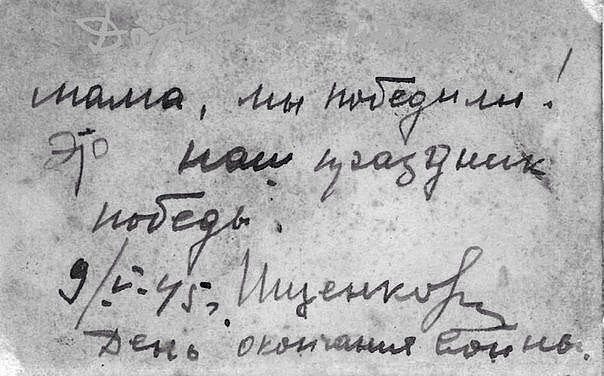 Дорогая
мама, мы победили!
Это наш праздник
победы.
9/V-45г. Ищенко
День окончания войны.